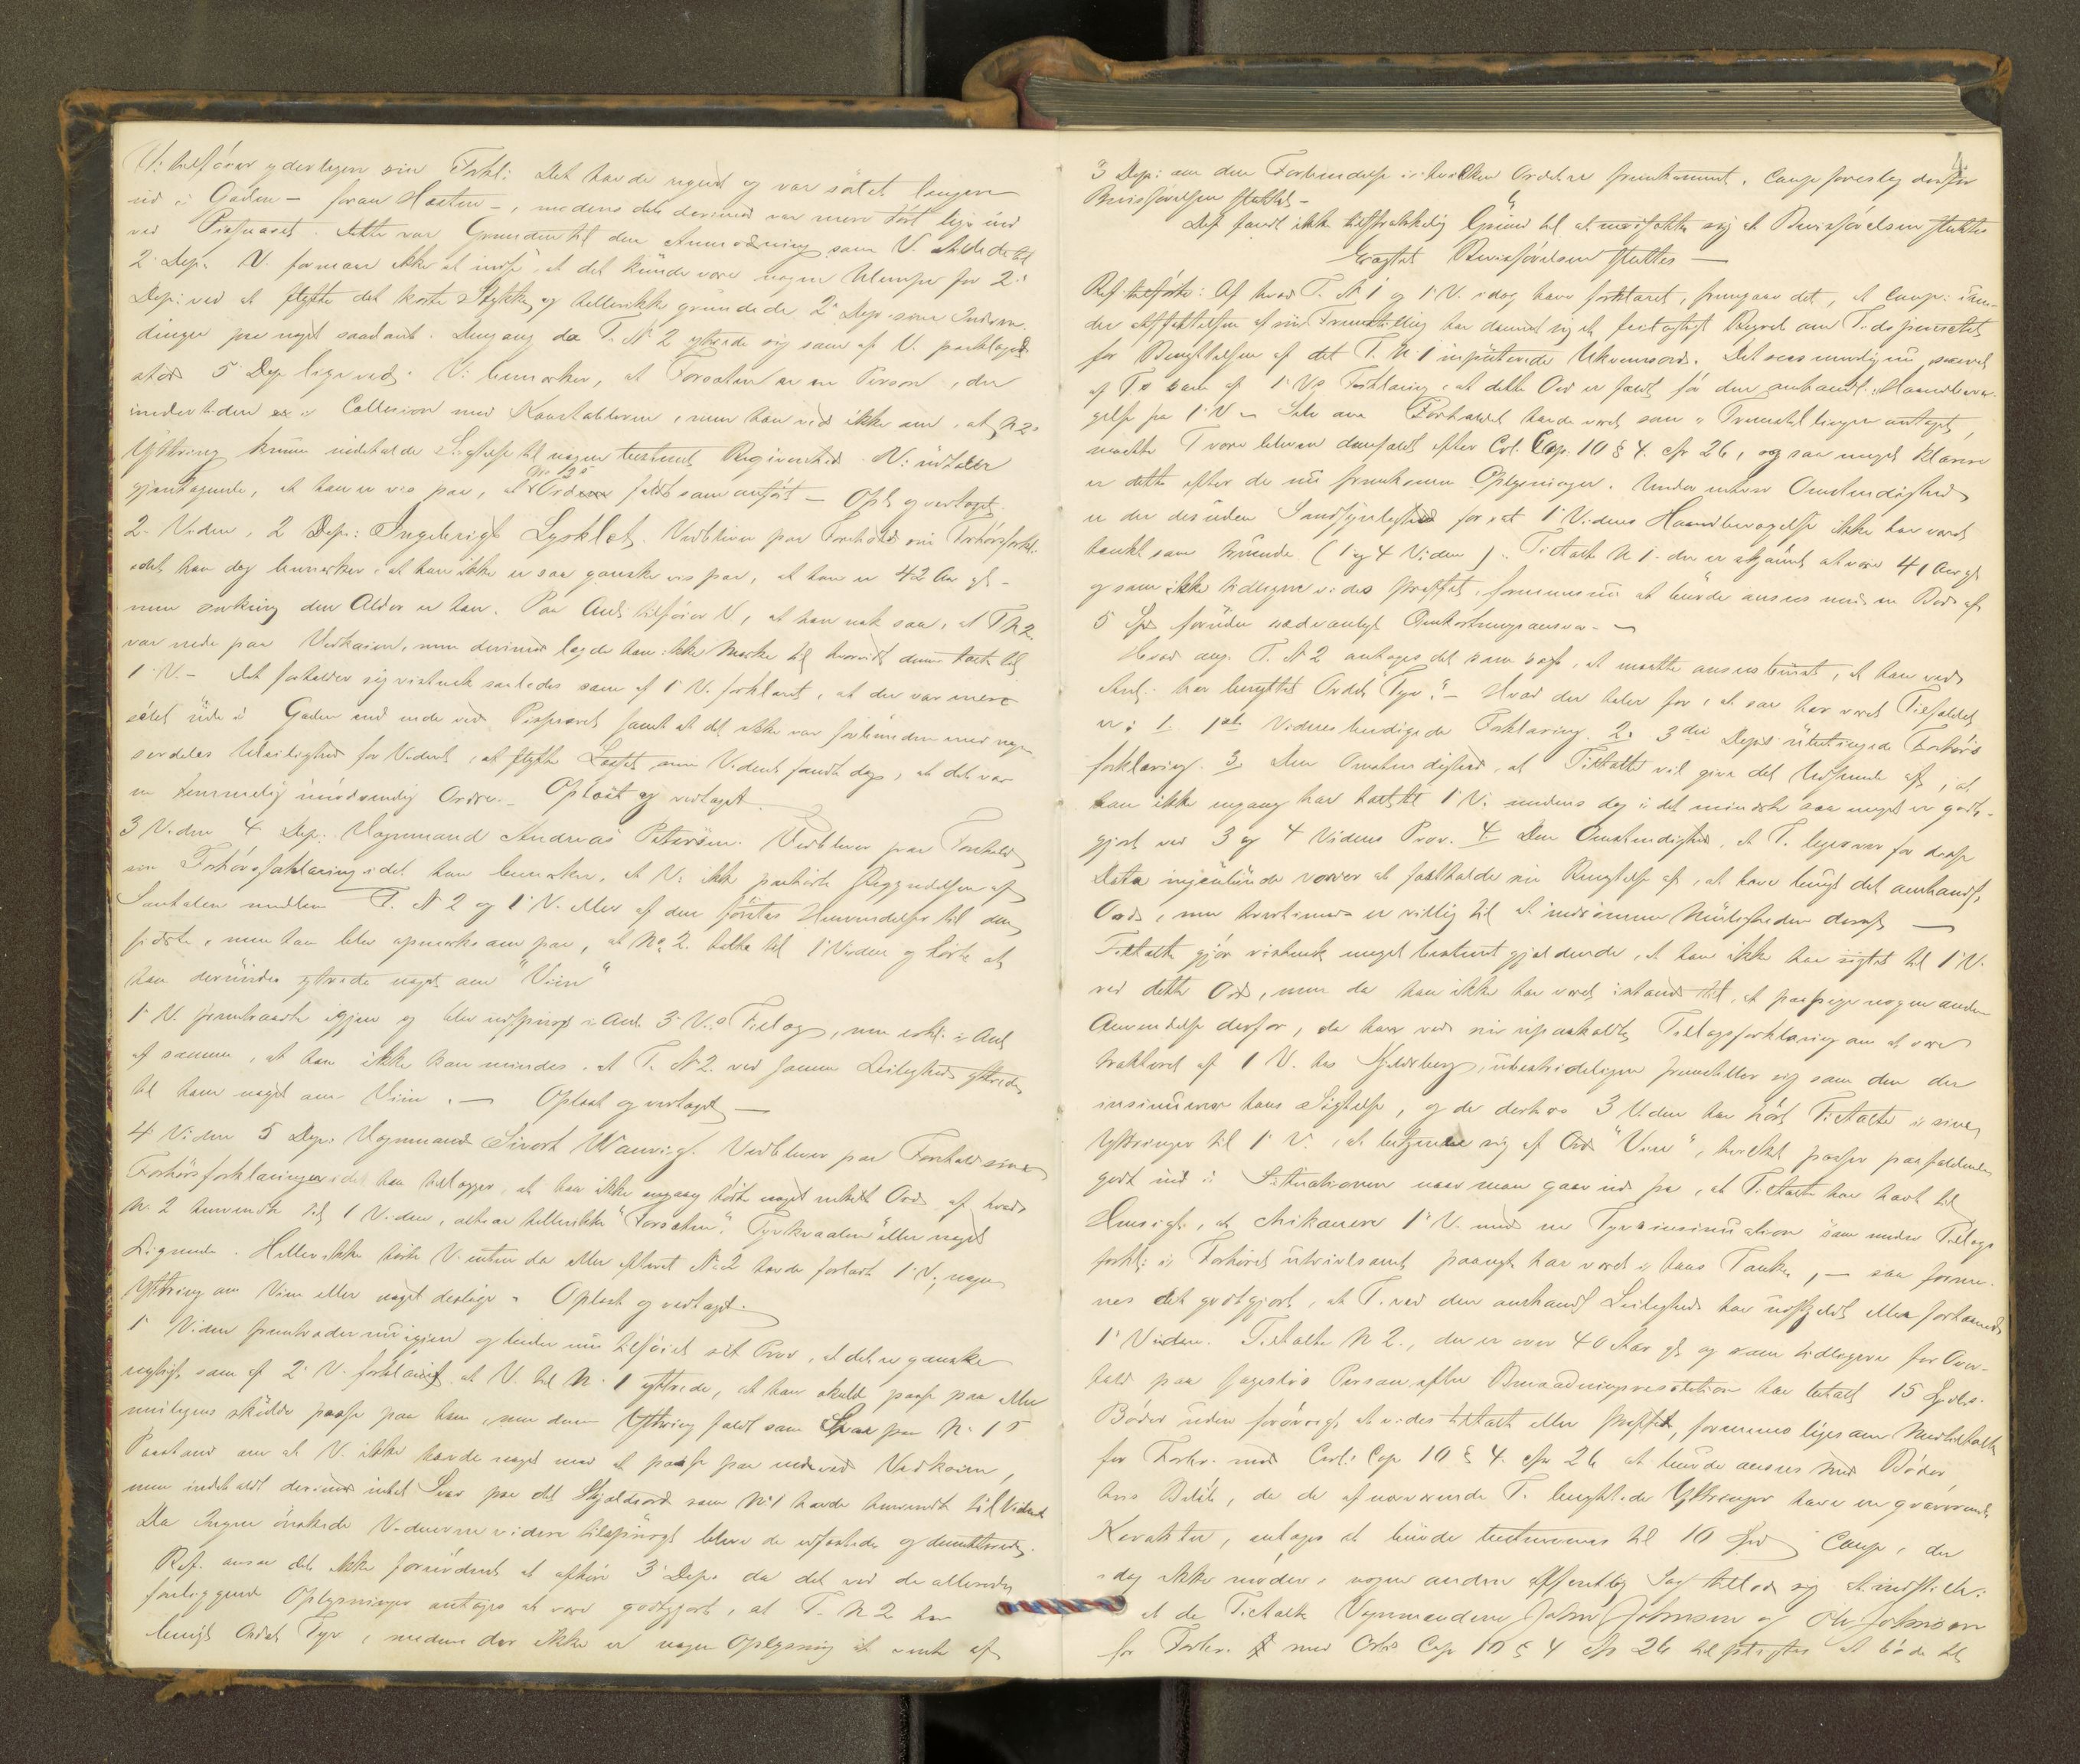 V: tilføier yderligere sin Forkl: Det havde regnet og var sølet længere
ud i Gaden – foran Hesten –, medens det derimod var mere tørt lige ind
ved Pisfuaset. Dette var Grunden til den Anmodning som V. stilede til
2 Dep. V. formaar ikke at indse, at det kunde være nogen Ulempe for 2:
Dep: ved at flytte det korte Stykke og hellerikke grundede 2 Dep. sine Indven-
dinger paa noget saadant. Dengang da T. N 2 yttrede sig som af V. paaklaget
stod 5 Dep. lige ved. V: bemærker, at Forsaten er en Person, der
undertiden er i Collision med Konstablerne, men han ved ikke om, at N 2s
Yttring kunde indeholde Sigtelse til nogen bestemt Begivenhed. V: udtaler
gjentagende, at han er vis paa, at Ordene faldt som anført – Opl. og vedtaget.
2. Vidne, 2 Dep: Ingebrigt Lysklet. Vedbliver paa Forehold sin Forhørsforkl.
idet han dog bemærker, at han ikke er saa ganske vis paa, at han er 42 Aar gl. –
men omkring den Alder er han. Paa Anl. tilføier V, at han nok saa, at T N 2.
var nede paa Vedkaien, men derimod lagde han ikke Mærke til hvorvidt denne talte til
1 V. – Det forholder sig vistnok saaledes som af 1 V. forklaret, at der var mere
sølet ude i Gaden end inde ved Pisfuaset samt at det ikke var forbunden med nogen
særdeles Uleilighed for Vidnet, at flytte Læsset, men Vidnet fandt dog, at det var
en temmelig unødvendig Ordre. – Oplæst og vedtaget.
3 Vidne 4 Dep. Vognmand Andreas Petersen. Vedbliver paa Forehold
sin Forhørsforklaring idet han bemærker, at V: ikke paahørte Begyndelsen af
Samtalen mellem T. N 2 og 1 V. eller af den førstes Henvendelse til den
sidste, men han blev opmærksom paa, at No 2. talte til 1 Vidne og hørte at
han derunder yttrede noget om "Viin"
1 V. fremkaldte igjen og blev udspurgt i Anl. 3 V.s Tillæg, men erkl. i Anl.
af samme, at han ikke kan mindes, at T. N 2. ved samme Leilighed yttrede
til ham noget om Viin. – Oplæst og vedtaget –
4 Vidne 5 Dep: Vognmand Sivert Wanvig. Vedbliver paa Forehold sine
Forhørsforklaringer idet han tillægger, at han ikke engang hørte noget enkelt Ord af hvad
N. 2 henvendte til 1 Vidne, altsaa hellerikke "Forsaten". Tyvkvaalen eller noget
Lignende. Heller ikke hørte V. enten da eller efterat N 2 havde forladt 1 V., nogen
Yttring om Viin eller noget deslige. Oplæst og vedtaget.
1 Vidne fremtræder nu igjen og beder nu tilføiet sit Prov, at det er ganske
rigtigt som af 2 V. forklaret at V. til N. 1 yttrede, at han skulde passe paa eller
muligens skulde passe paa ham, men denne Yttring faldt som Svar paa N. 1s
Paastand om at V. ikke havde noget med at passe paa nede ved Vedkaien,
men indeholdt derimod intet Svar paa det Skjældsord som N 1 havde henvendt til Vidnet
Da Ingen ønskede Vidnerne videre tilspurgt bleve de edfæstede og demitterede.
Ref. anser det ikke fornødent at afhøre 3 Dep. da det ved de allerede
foreliggende Oplysninger antages at være godtgjort, at T. N 2 har
brugt Ordet Tyv, medens der ikke er nogen Oplysning at vente af
4.
3 Dep: om den Forbindelse i hvilken Ordet er fremkommet. Comp. foreslog derfor
Bevisførelsen sluttet –
Def. fandt ikke tilstrækkelig Grund til at modsætte sig at Bevisførelsen sluttes
Eragtet Bevisførelsen sluttes –
Ref. tilførte: Af hvad T. N 1 og 1 V. idag have forklaret, fremgaar det, at Comp. un-
der Affattelsen af sin Fremstilling har dannet sig et feilagtigt Begreb om Tidspunctet
for Benyttelsen af det T. N 1 imputerede Ukvemsord. Det sees nemlig nu, saavel
af T.s som af 1 V.s Forklaring, at dette Ord er faldt før den omhandl. Haandbevæ-
gelse fra 1 V. Selv om Forholdet havde været som i Fremstillingen antaget,
maatte T være bleven domfældt efter Crl. Cap. 10 § 4. cfr 26, og saa meget klarere
er dette efter de nu fremkomne Oplysninger. Under enhver Omstændighed
er der desuden Sandsynlighed for, at 1 Vidnes Haandbevægelse ikke har været
tænkt som truende (1 og 4 Vidne). Tiltalte N 1. der er skjønnet at være 41 Aar gl.
og som ikke tidligere vides straffet, formenes nu at burde ansees med en Bod af
5 Spd foruden sædvanligt Omkostningsansvar. –
Hvad ang. T. N 2 antages det som sagt, at maatte ansees bevist, at han ved
Anl. har benyttet Ordet "Tyv". – Hvad der taler for, at saa har været Tilfældet
er: 1. 1ste Vidnes beedigede Forklaring. 2. 3die Deps. utvetydige Forhørs
forklaring. 3. Den Omstændighed, at Tiltalte vil give det Udseende af, at
han ikke engang har talt til 1 V. medens dog i det mindste saa meget er godt-
gjort ved 3 og 4 Vidnes Prov. 4. Den Omstændighed, at T. ligeoverfor disse
Data ingenlunde vover at fastholde sin Benægtelse af, at have brugt det omhandl.
Ord, men tvertimod er villig til at indrømme Muligheden deraf –
Tiltalte gjør vistnok meget bestemt gjældende, at han ikke har sigtet til 1 V.
ved dette Ord, men da han ikke har været istand til, at paapege nogen anden
Anvendelse derfor, da han ved sin upaakaldte Tillægsforklaring om at være
trakteret af 1 V. hos Gjeldsberg, ubestrideligen fremstiller sig som den der
insinuerer hans Sigtelse, og da derhos 3 Vidne har hørt Tiltalte i sine
Yttringer til 1 V., at betjene sig af Ord "Viin", hvilket passer paafaldende
godt ind i Situationen naar man gaar ud fra, at Tiltalte har havt til
Hensigt, at chikanere 1 V. med en Tyvsinsinuation som under Tillægs
forkl. i Forhøret utvivlsomt paanyt har været i hans Tanke, – saa forme-
nes det godtgjort, at T. ved den omhandl. Leilighed har udskjeldt eller forhaanet
1 Vidne. Tiltalte N 2., der er over 40 Aar gl. og som tidligere for Over-
fald paa sagesløs Person efter Benaadningsresolution har betalt 15 Spdlrs.
Bøder uden forøvrigt at vides tiltalt eller straffet, formenes ligesom Medtiltalte
for Forbr. mod Crl. Cap 10 § 4. cfr 26 at burde ansees med Bøder
hvis Beløb, da de af nærværende T. benyttede Yttringer have en graverende
Karakter, antages at burde bestemmes til 10 Spd Comp., der
idag ikke møder i nogen anden offentlig Sag tillod sig at indstille:
at de Tiltalte Vognmændene John Johnsen og Ole Johnsen
for Forbr. mod Crls Cap 10 § 4 cfr 26 tilpligtes at bøde til